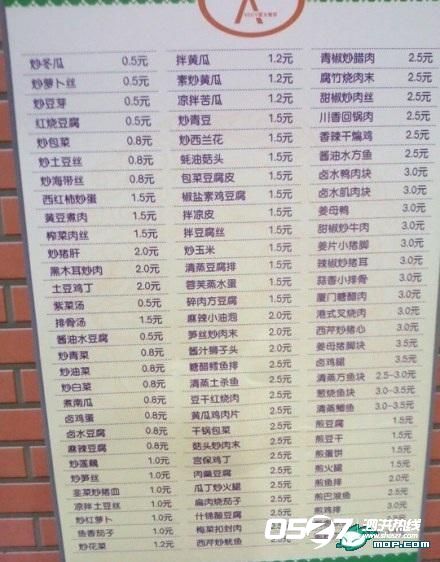 炒冬瓜 0.5元
炒萝卜丝 0.5元
炒豆芽 0.5元
红烧豆腐 0.5元
炒包菜 0.8元
炒土豆丝 0.8元
炒海带丝 0.8元
西红柿炒蛋 1.5元
黄豆煮肉 1.5元
榨菜肉丝 1.5元
炒猪肝 2.0元
黑木耳炒肉 2.0元
土豆鸡丁 2.0元
紫菜汤 0.5元
排骨汤 1.5元
酱油水豆腐 0.5元
炒青菜 0.8元
炒油菜 0.8元
炒白菜 0.8元
煮南瓜 0.8元
卤鸡蛋 0.8元
卤水豆腐 0.8元
麻辣豆腐 0.8元
炒莲藕 1.0元
炒笋丝 1.0元
韭菜炒猪血 1.0元
凉拌土豆丝 1.0元
炒红萝卜 1.0元
鱼香茄子 1.0元
炒花菜 1.2元
拌黄瓜 1.2元
素炒黄瓜 1.2元
凉拌苦瓜 1.2元
炒青豆 1.5元
炒西兰花 1.5元
蚝油菇头 1.5元
包菜豆腐皮 1.5元
椒盐素鸡豆腐 1.5元
拌凉皮 1.5元
拌豆腐丝 1.5元
炒玉米 1.5元
清蒸豆腐排 1.5元
蓉芙蒸水蛋 1.5元
碎肉方豆腐 1.5元
麻辣小油泡 2.0元
笋丝炒肉末 2.0元
酱汁狮子头 2.0元
糖醋鳕鱼排 2.5元
清蒸土杀鱼 2.5元
豆干红烧肉 2.5元
黄瓜鸡肉片 2.5元
干锅包菜 2.5元
菇头炒肉末 2.5元
宫保鸡丁 2.5元
肉羹豆腐 2.5元
瓜丁炒火腿 2.5元
扁肉烧茄子 2.5元
什锦酿豆腐 2.5元
梅菜扣封肉 2.5元
西芹炒鱿鱼 2.5元
青椒炒腊肉 2.5元
腐竹烧肉末 2.5元
甜椒炒肉丝 2.5元
川香回锅肉 2.5元
香辣干煸鸡 2.5元
酱油水方鱼 2.5元
卤水鸭肉块 3.0元
卤水肌肉块 3.0元
姜母鸭 3.0元
甜椒炒牛肉 3.0元
姜片小猪脚 3.0元
辣椒炒猪耳 3.0元
蒜香小排骨 3.0元
厦门糖醋肉 3.0元
港式叉烧肉 3.0元
西芹炒猪心 3.0元
姜母猪脚 3.5元
卤鸡腿 3.5元
清蒸方鱼块 2.5—3.0元
葱烧鱼块 3.0—3.5元
清蒸鲳鱼 3.0—3.5元
煎豆腐 1.5元
煎豆干 1.5元
煎蛋饼 1.5元
煎火腿 1.5元
煎鱼排 2.0元
煎巴浪鱼 2.5元
煎鸡排
0597
mop.com